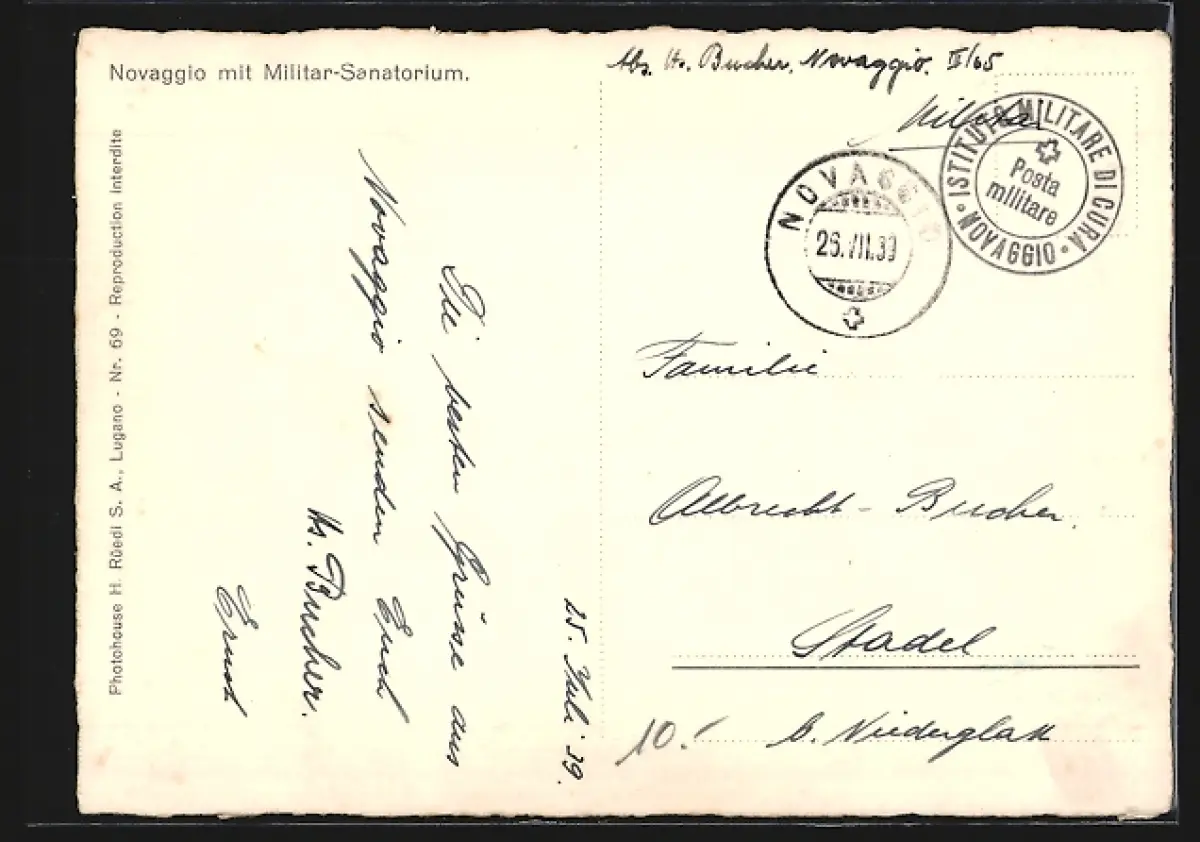 Novaggio mit Militar-Sanatorium.
Photohouse H. Rüedi S. A., Lugano - Nr. 69 - Reproduction interdite
25. Juli 39.
Die besten Grüsse aus
Novaggio senden Euch
Hs. Bucher.
Ernst
Abs. Hs. Bucher, Novaggio. II/65
Militär
ISTITUTO MILITARE DI CURA
NOVAGGIO
Posta
militare
NOVAGGIO
26.VII.39
Familie
Albrecht - Bucher.
Stadel
b. Niederglatt
10.-